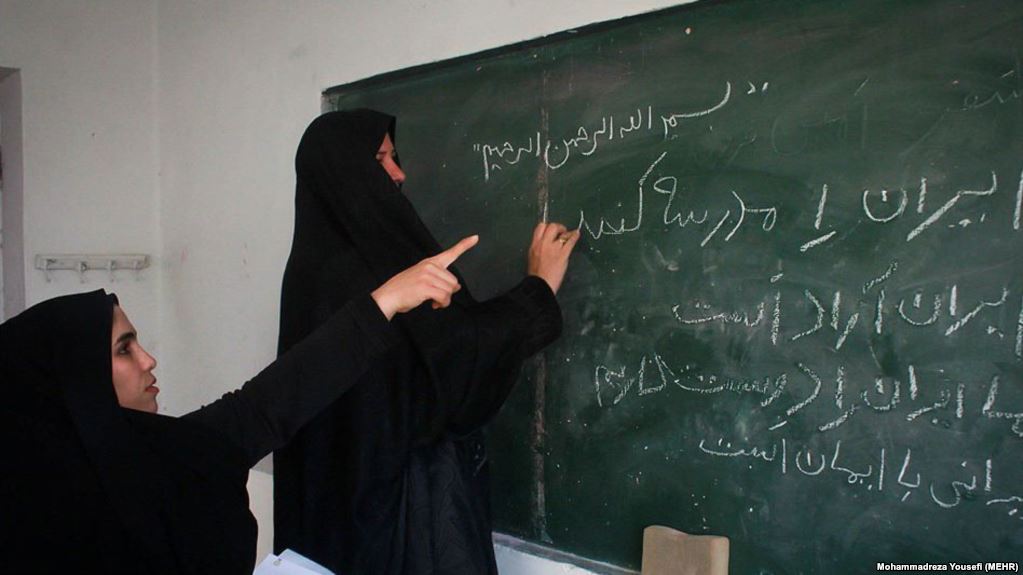 "بسم الله الرحمن الرحیم"
ایران را مدرسه کنید
ایران آزاد است
ما ایران را دوست داریم
ایرانی با ایمان است
Mohammadreza Yousefi (MEHR)